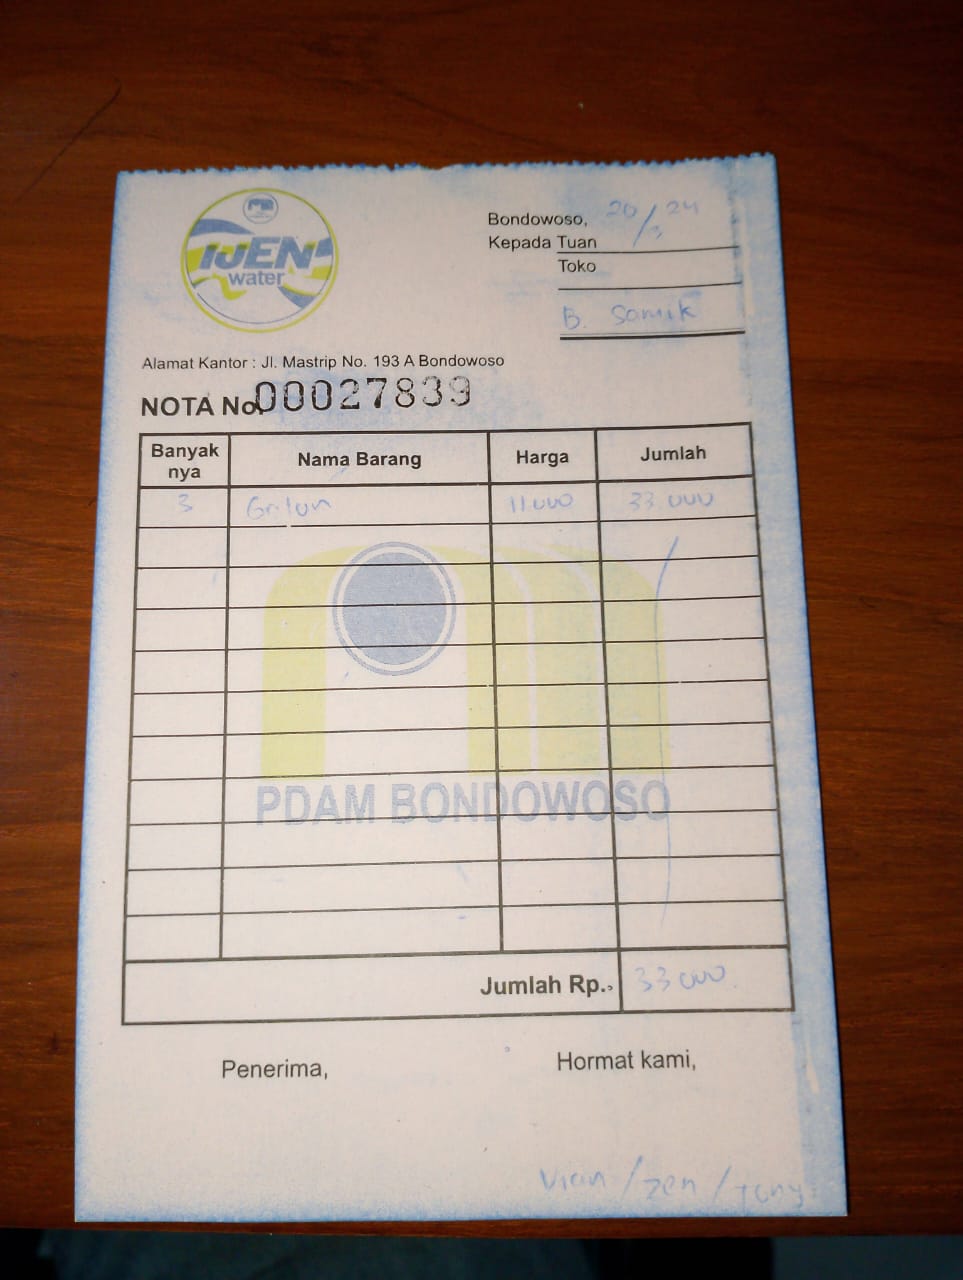 IJEN
water
Bondowoso, 20/3 24
Kepada Tuan
Toko
B. Samik
Alamat Kantor : Jl. Mastrip No. 193 A Bondowoso
NOTA No. 00027839
Banyak nya Nama Barang Harga Jumlah
3 Galon 11.000 33.000
PDAM BONDOWOSO
Jumlah Rp. 33.000
Penerima, Hormat kami,
Vian / zen / Tony